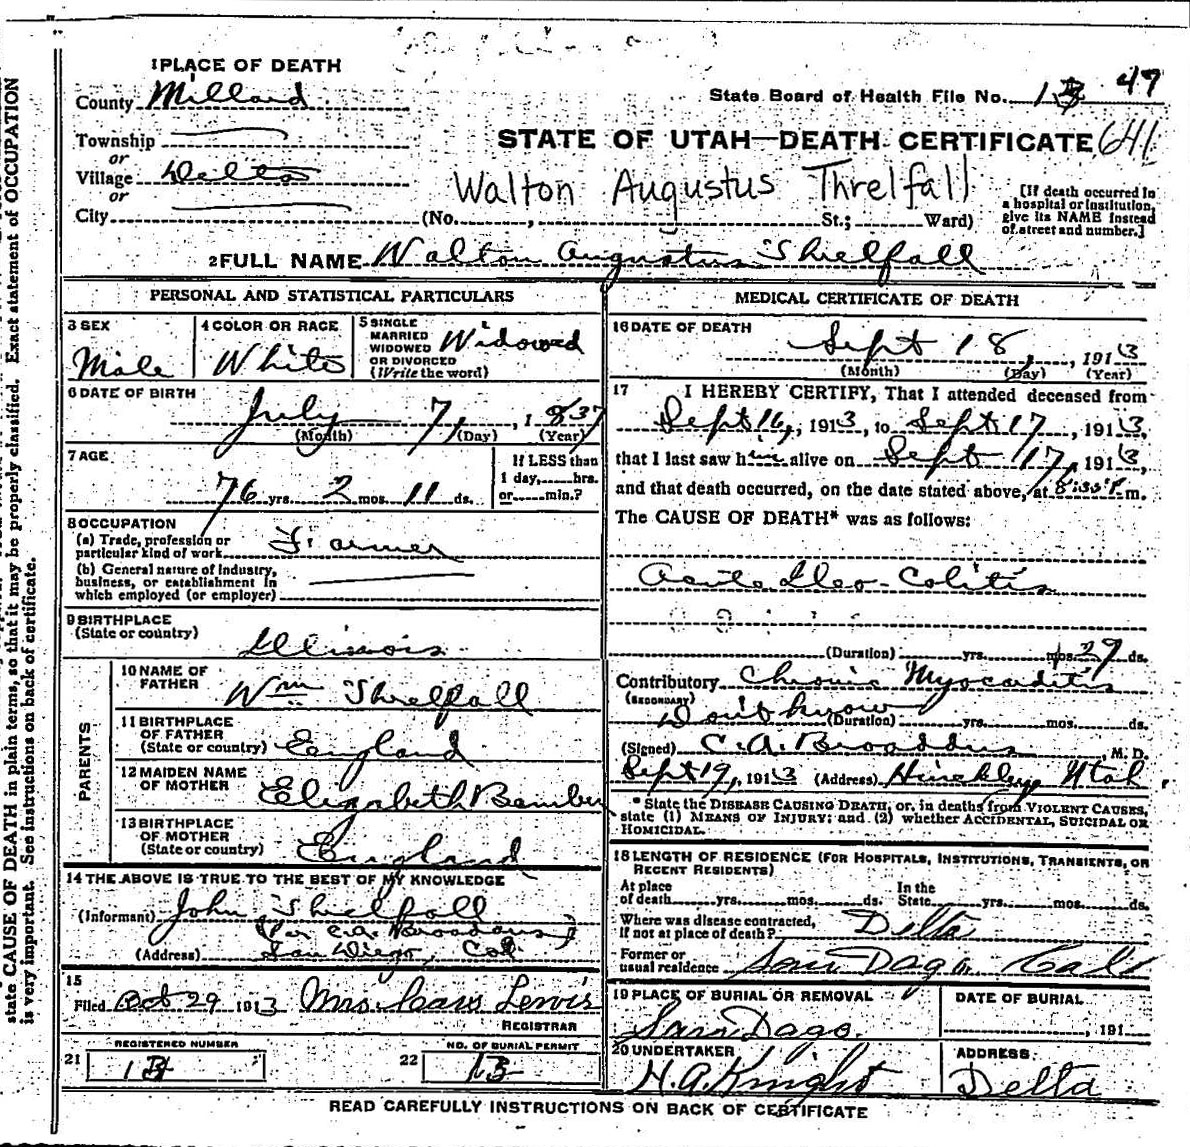 state CAUSE OF DEATH in plain terms, so that it may be properly classified. Exact statement of OCCUPATION
is very important. See instructions on back of certificate.
1 PLACE OF DEATH
County Millard
State Board of Health File No. 13 47
Township
STATE OF UTAH—DEATH CERTIFICATE 641
or
Village Delta
Walton Augustus Threlfall
or
City (No. , St.; Ward)
[If death occurred in
a hospital or institution,
give its NAME instead
of street and number.]
2 FULL NAME Walton Augustus Threlfall
PERSONAL AND STATISTICAL PARTICULARS
3 SEX
Male
4 COLOR OR RACE
White
5 SINGLE
MARRIED
WIDOWED
OR DIVORCED
(Write the word)
Widowed
6 DATE OF BIRTH
July 7, 1837
(Month) (Day) (Year)
7 AGE
76 yrs. 2 mos. 11 ds.
If LESS than
1 day, hrs.
or min.?
8 OCCUPATION
(a) Trade, profession or
particular kind of work Farmer
(b) General nature of industry,
business, or establishment in
which employed (or employer)
9 BIRTHPLACE
(State or country) Illinois
PARENTS
10 NAME OF
FATHER Wm Threlfall
11 BIRTHPLACE
OF FATHER
(State or country) England
12 MAIDEN NAME
OF MOTHER Elizabeth Bamber
13 BIRTHPLACE
OF MOTHER
(State or country) England
14 THE ABOVE IS TRUE TO THE BEST OF MY KNOWLEDGE
(Informant) John Threlfall
(Per C.A. Broaddus)
(Address) San Diego, Cal.
15
Filed Oct 29 1913 Mrs. Lewis
REGISTRAR
REGISTERED NUMBER
21 13
NO. OF BURIAL PERMIT
22 13
MEDICAL CERTIFICATE OF DEATH
16 DATE OF DEATH
Sept 18, , 1913
(Month) (Day) (Year)
17 I HEREBY CERTIFY, That I attended deceased from
Sept 16, , 1913, to Sept 17 , 1913,
that I last saw him alive on Sept 17, 1913,
and that death occurred, on the date stated above, at P m.
The CAUSE OF DEATH* was as follows:
Acute Ileo-Colitis
(Duration) yrs. mos. 29 ds.
Contributory Chronic Myocarditis
(SECONDARY)
Don't know (Duration) yrs. mos. ds.
(Signed) C.A. Broaddus M. D.
Sept 19, 1913 (Address) Hinckley, Utah
* State the DISEASE CAUSING DEATH, or, in deaths from VIOLENT CAUSES,
state (1) MEANS OF INJURY; and (2) whether ACCIDENTAL, SUICIDAL OR
HOMICIDAL.
18 LENGTH OF RESIDENCE (FOR HOSPITALS, INSTITUTIONS, TRANSIENTS, OR
RECENT RESIDENTS)
At place
of death yrs. mos. ds.
In the
State yrs. mos. ds.
Where was disease contracted,
If not at place of death? Delta
Former or
usual residence San Dago Cali
19 PLACE OF BURIAL OR REMOVAL
San Dago.
DATE OF BURIAL
, 191
20 UNDERTAKER
H. A. Knight
ADDRESS
Delta
READ CAREFULLY INSTRUCTIONS ON BACK OF CERTIFICATE